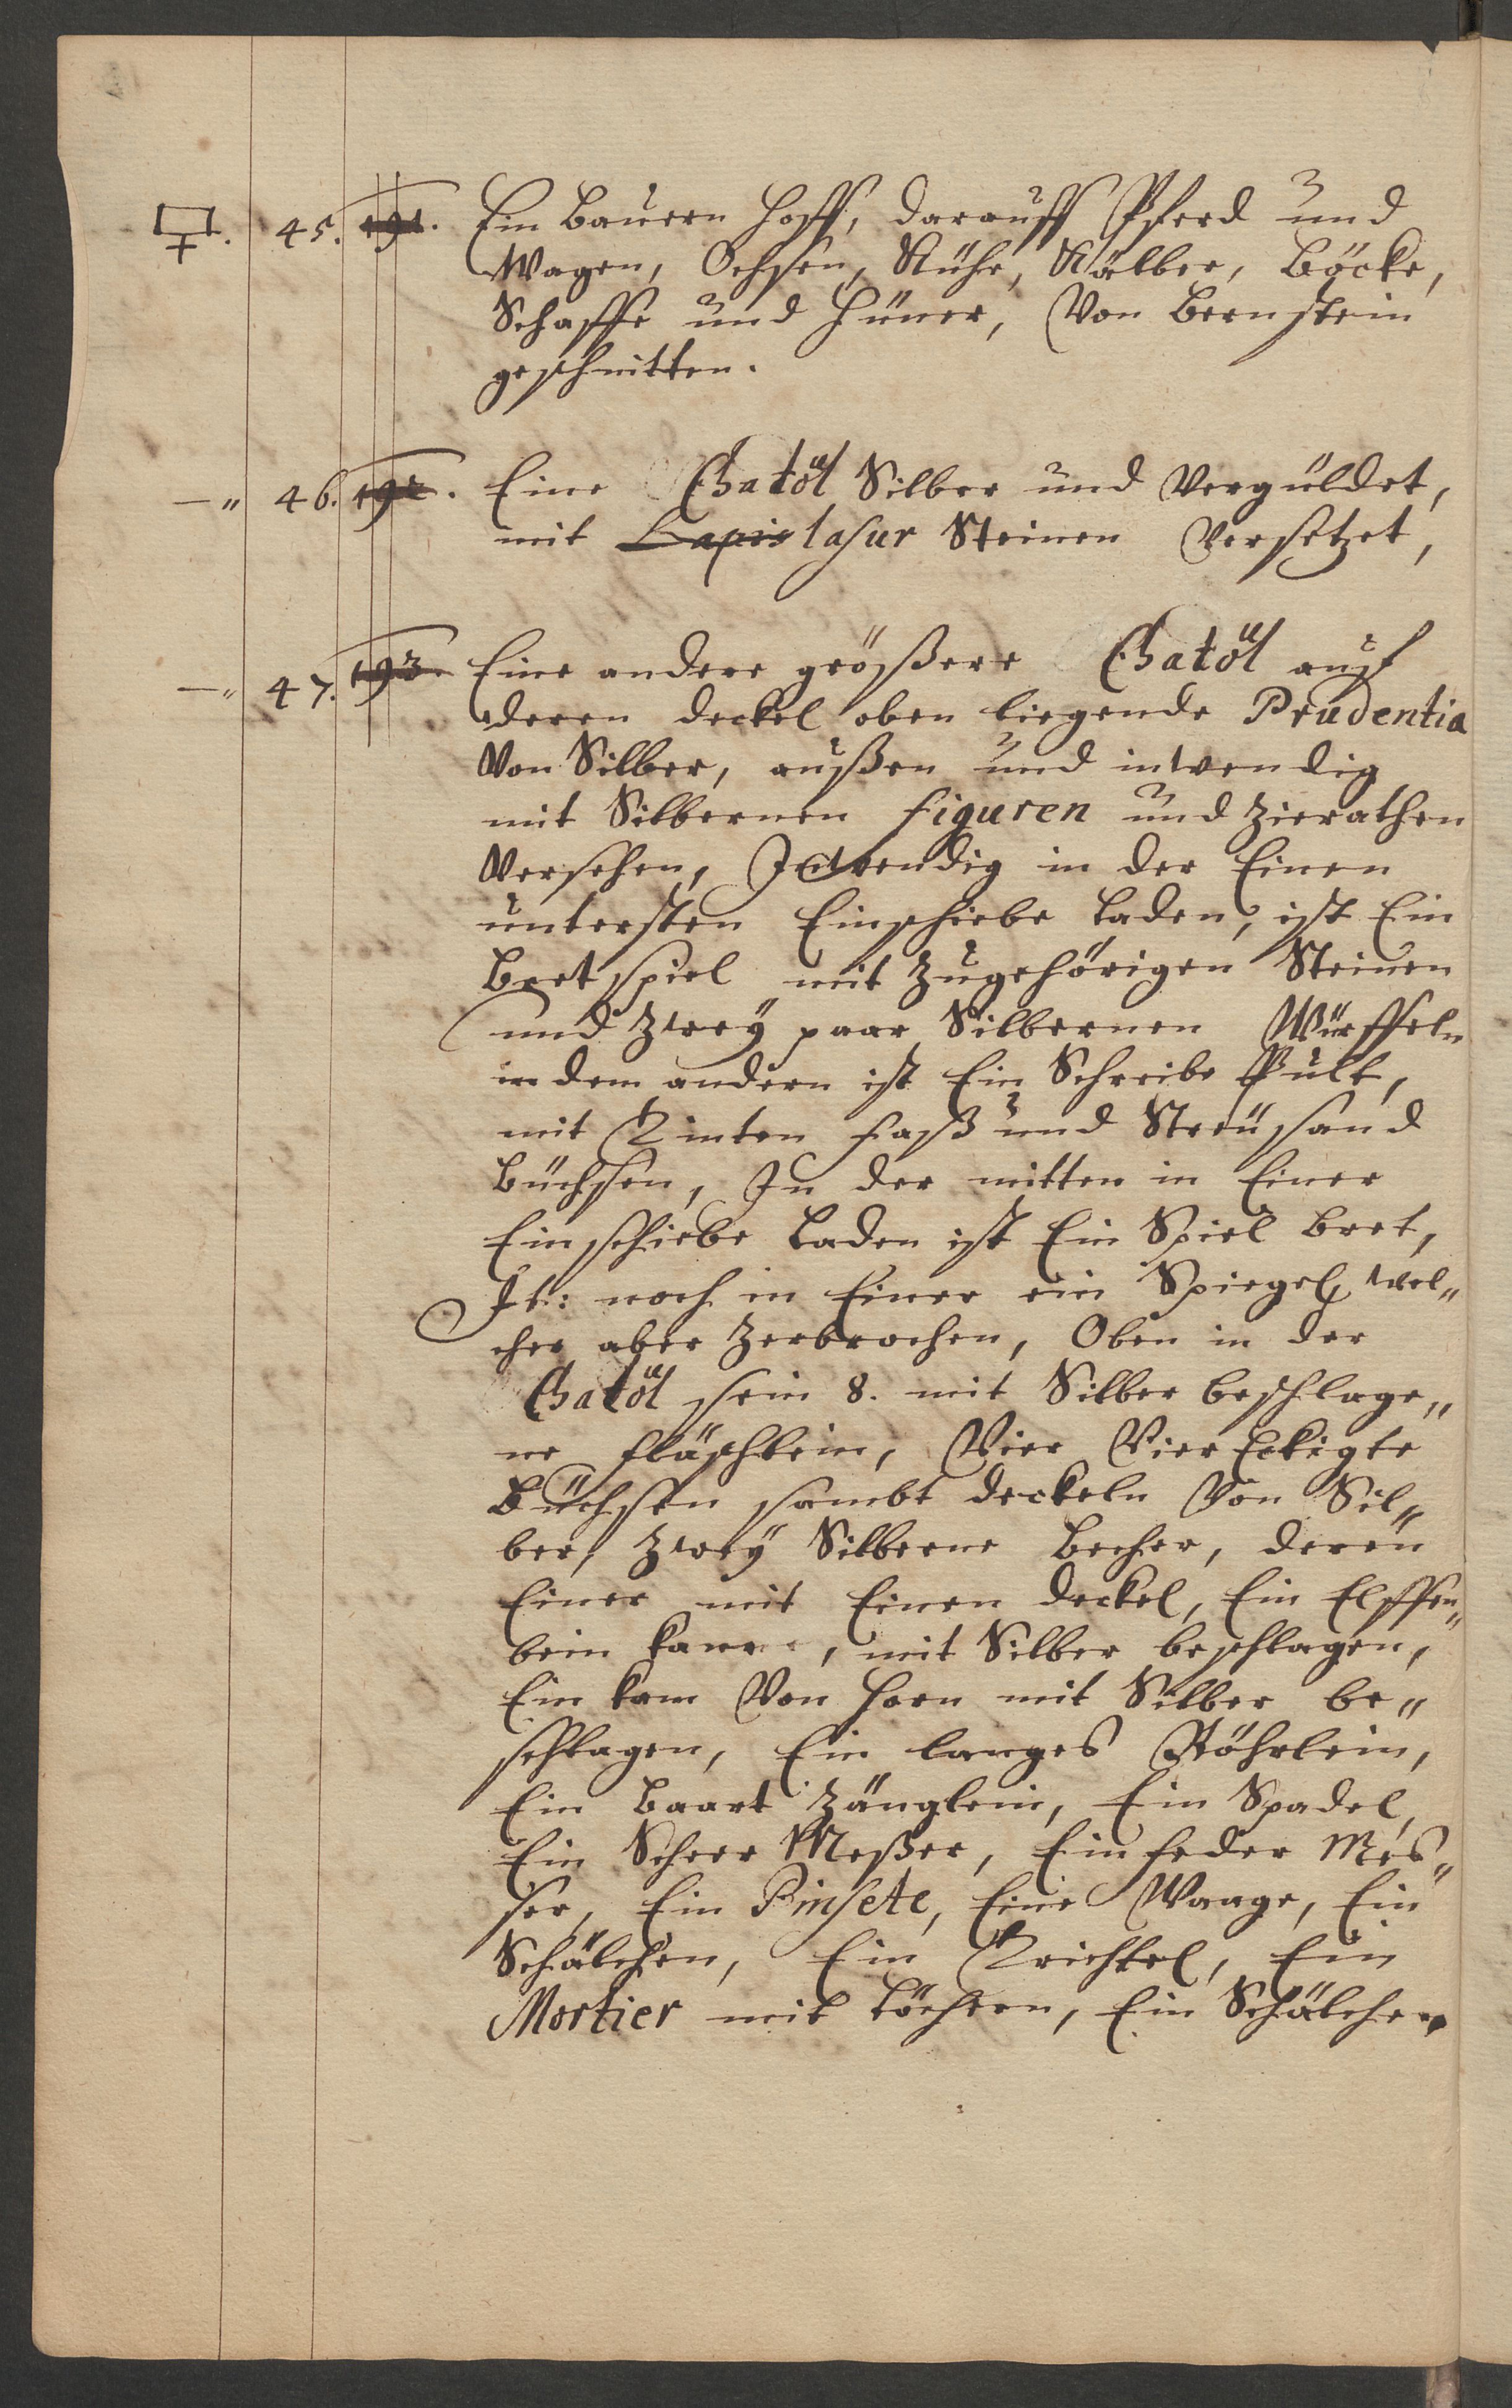 45. 191. Ein Bauern hoff, darauff Pferd und
Wagen, Ochsen, Kühe, Kälber, Böcke,
Schaffe und Hüner, Von Bernstein
geschnitten.
—" 46. 192. Eine Chatöl Silber und Vergüldet,
mit Lapis lasur Steinen Versetzet,
—" 47. 193. Eine andere größere Chatöl auf
deren deckel oben liegende Prudentia
Von Silber, außen und inwendig
mit Silbernen figuren und Zierathen
Versehen, Inwendig in der Einen
untersten Einschiebe Laden, ist Ein
Bretspiel mit Zugehörigen Steinen
und Zweÿ paar Silbernen Würffeln
in dem andern ist Ein Schreibe Pult,
mit Tinten faß und Streüsand
Büchsen, In der mitten in Einer
Einschiebe Laden ist Ein Spiel bret,
It: noch in Einer ein Spiegel, wel„
cher aber Zerbrochen, Oben in der
Chatöl sein 8. mit Silber beschlage„
ne fläschlein, Vier Vier Eckigte
Büchsen sambt deckeln Von Sil„
ber, Zweÿ Silberne Becher, deren
Einer mit Einen deckel, Ein Elffen„
bein kam, mit Silber beschlagen,
Ein kam Von Horn mit Silber be„
schlagen, Ein langes Röhrlein,
Ein Baart Zänglein, Ein Spadel,
Ein Scheer Meßer, Ein feder Mes„
ser, Ein Pinsete, Eine Waage, Ein
Schälchen, Ein Trichtel, Ein
Mortier mit Löchern, Ein Schälchen